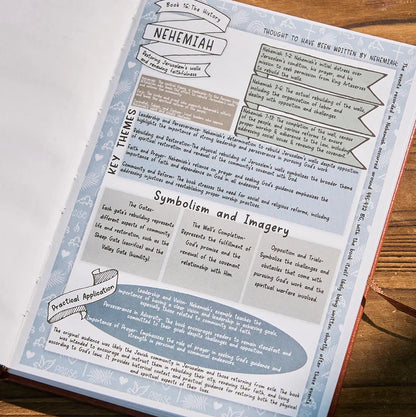 Book 16: The History
NEHEMIAH
Restoring Jerusalem's walls
and renewing faithfulness
THOUGHT TO HAVE BEEN WRITTEN BY NEHEMIAH
Nehemiah 1-2: Nehemiah's initial distress over
Jerusalem's condition, his prayer, and his
mission to seek permission from King Artaxerxes
to rebuild the walls.
Nehemiah 3-6: The actual rebuilding of the walls,
including the organization of labor and
dealing with opposition and challenges.
Nehemiah 7-13: The completion of the wall, census
of the
KEY THEMES
Leadership and Perseverance: Nehemiah's determination to rebuild Jerusalem's walls despite opposition
highlights the importance of strong leadership and perseverance in pursuing God's work.
Rebuilding and Restoration: The physical rebuilding of Jerusalem's walls symbolizes the broader theme
of spiritual restoration and renewal of the community's covenant with God.
Faith and Prayer: Nehemiah's reliance on prayer and seeking God's guidance emphasizes the
importance of faith and dependence on God in all endeavors.
Community and Reform: The book stresses the need for social and religious reforms, including
addressing injustices and reestablishing proper worship practices.
Symbolism and Imagery
The Gates-
Each gate's rebuilding represents
different aspects of community
life and restoration, such as the
Sheep Gate (sacrifice) and the
Valley Gate (humility).
The Wall's Completion-
Represents the fulfillment of
God's promise and the
renewal of the covenant
relationship with Him.
Opposition and Trials-
Symbolizes the challenges and
obstacles that come with
pursuing God's work and the
spiritual warfare involved.
Practical Application
Leadership and Vision: Nehemiah's example teaches the
importance of having a clear vision and leadership in achieving goals,
especially those related to community and faith.
Perseverance in Adversity: The book encourages readers to remain steadfast and
committed to their work despite challenges and opposition.
Importance of Prayer: Emphasizes the role of prayer in seeking God's guidance and
strength in personal and community endeavors.
The original audience was likely the Jewish community in Jerusalem and those returning from exile. The book
was intended to encourage and instruct them in rebuilding their city, renewing their faith, and living
according to God's laws. It provides historical context and practical guidance for restoring both the physical
and spiritual aspects of their lives.